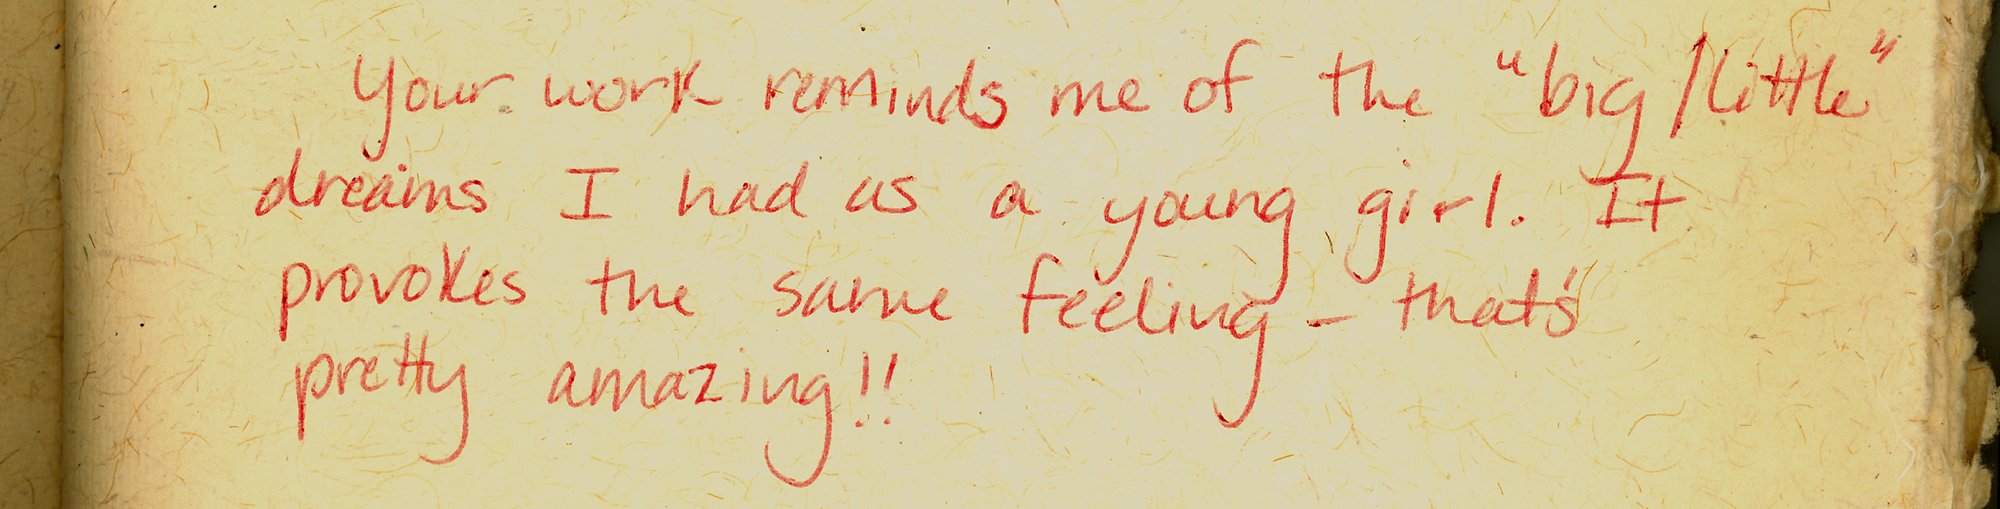 Your work reminds me of the "big/little"
dreams I had as a young girl. It
provokes the same feeling - that's
pretty amazing!!